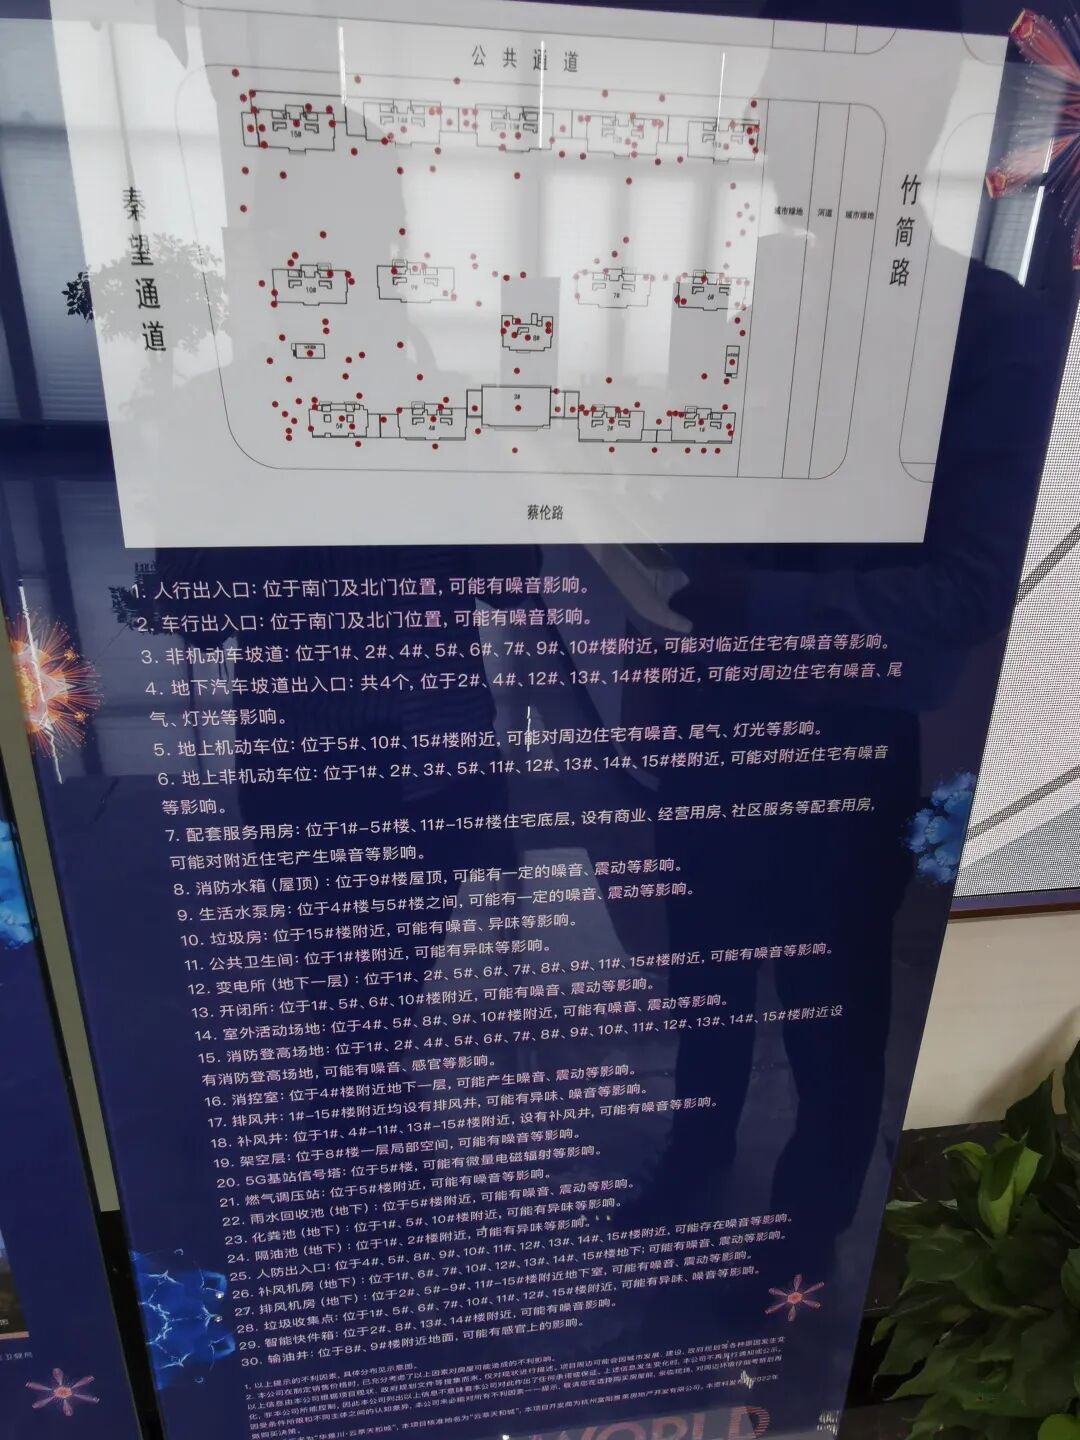 公共通道
秦望通道
竹简路
城市绿地
河道
城市绿地
15#
10#
9#
7#
6#
8#
3#
5#
4#
2#
1#
蔡伦路
1. 人行出入口: 位于南门及北门位置, 可能有噪音影响。
2. 车行出入口: 位于南门及北门位置, 可能有噪音影响。
3. 非机动车坡道: 位于1#、2#、4#、5#、6#、7#、9#、10#楼附近, 可能对临近住宅有噪音等影响。
4. 地下汽车坡道出入口: 共4个, 位于2#、4#、12#、13#、14#楼附近, 可能对周边住宅有噪音、尾
气、灯光等影响。
5. 地上机动车位: 位于5#、10#、15#楼附近, 可能对周边住宅有噪音、尾气、灯光等影响。
6. 地上非机动车位: 位于1#、2#、3#、5#、11#、12#、13#、14#、15#楼附近, 可能对附近住宅有噪音
等影响。
7. 配套服务用房: 位于1#-5#楼、11#-15#楼住宅底层, 设有商业、经营用房、社区服务等配套用房,
可能对附近住宅产生噪音等影响。
8. 消防水箱 (屋顶) : 位于9#楼屋顶, 可能有一定的噪音、震动等影响。
9. 生活水泵房: 位于4#楼与5#楼之间, 可能有一定的噪音、震动等影响。
10. 垃圾房: 位于15#楼附近, 可能有噪音、异味等影响。
11. 公共卫生间: 位于1#楼附近, 可能有异味等影响。
12. 变电所 (地下一层) : 位于1#、2#、5#、6#、7#、8#、9#、11#、15#楼附近, 可能有噪音等影响。
13. 开闭所: 位于1#、5#、6#、10#楼附近, 可能有噪音、震动等影响。
14. 室外活动场地: 位于4#、5#、8#、9#、10#楼附近, 可能有噪音、震动等影响。
15. 消防登高场地: 位于1#、2#、4#、5#、6#、7#、8#、9#、10#、11#、12#、13#、14#、15#楼附近设
有消防登高场地, 可能有噪音、感官等影响。
16. 消控室: 位于4#楼附近地下一层, 可能产生噪音、震动等影响。
17. 排风井: 1#-15#楼附近均设有排风井, 可能有异味、噪音等影响。
18. 补风井: 位于1#、4#-11#、13#-15#楼附近, 设有补风井, 可能有噪音等影响。
19. 架空层: 位于8#楼一层局部空间, 可能有噪音等影响。
20. 5G基站信号塔: 位于5#楼, 可能有微量电磁辐射等影响。
21. 燃气调压站: 位于5#楼附近, 可能有噪音等影响。
22. 雨水回收池 (地下) : 位于5#楼附近, 可能有噪音、震动等影响。
23. 化粪池 (地下) : 位于1#、5#、10#楼附近, 可能有异味等影响。
24. 隔油池 (地下) : 位于1#、2#楼附近, 可能有异味等影响。
25. 人防出入口: 位于4#、5#、8#、9#、10#、11#、12#、13#、14#、15#楼附近, 可能存在噪音等影响。
26. 补风机房 (地下) : 位于1#、6#、7#、10#、12#、13#、14#、15#楼地下; 可能有噪音、震动等影响。
27. 排风机房 (地下) : 位于2#、5#-9#、11#-15#楼附近地下室, 可能有噪音、震动等影响。
28. 垃圾收集点: 位于1#、5#、6#、7#、10#、11#、12#、15#楼附近, 可能有异味、噪音等影响。
29. 智能快件箱: 位于2#、8#、13#、14#楼附近, 可能有噪音影响。
30. 输油井: 位于8#、9#楼附近地面, 可能有感官上的影响。
1. 以上提示的不利因素, 具体分布见示意图。
2. 本公司在制定销售价格时, 已充分考虑了以上因素对房屋可能造成的不利影响。
WORLD